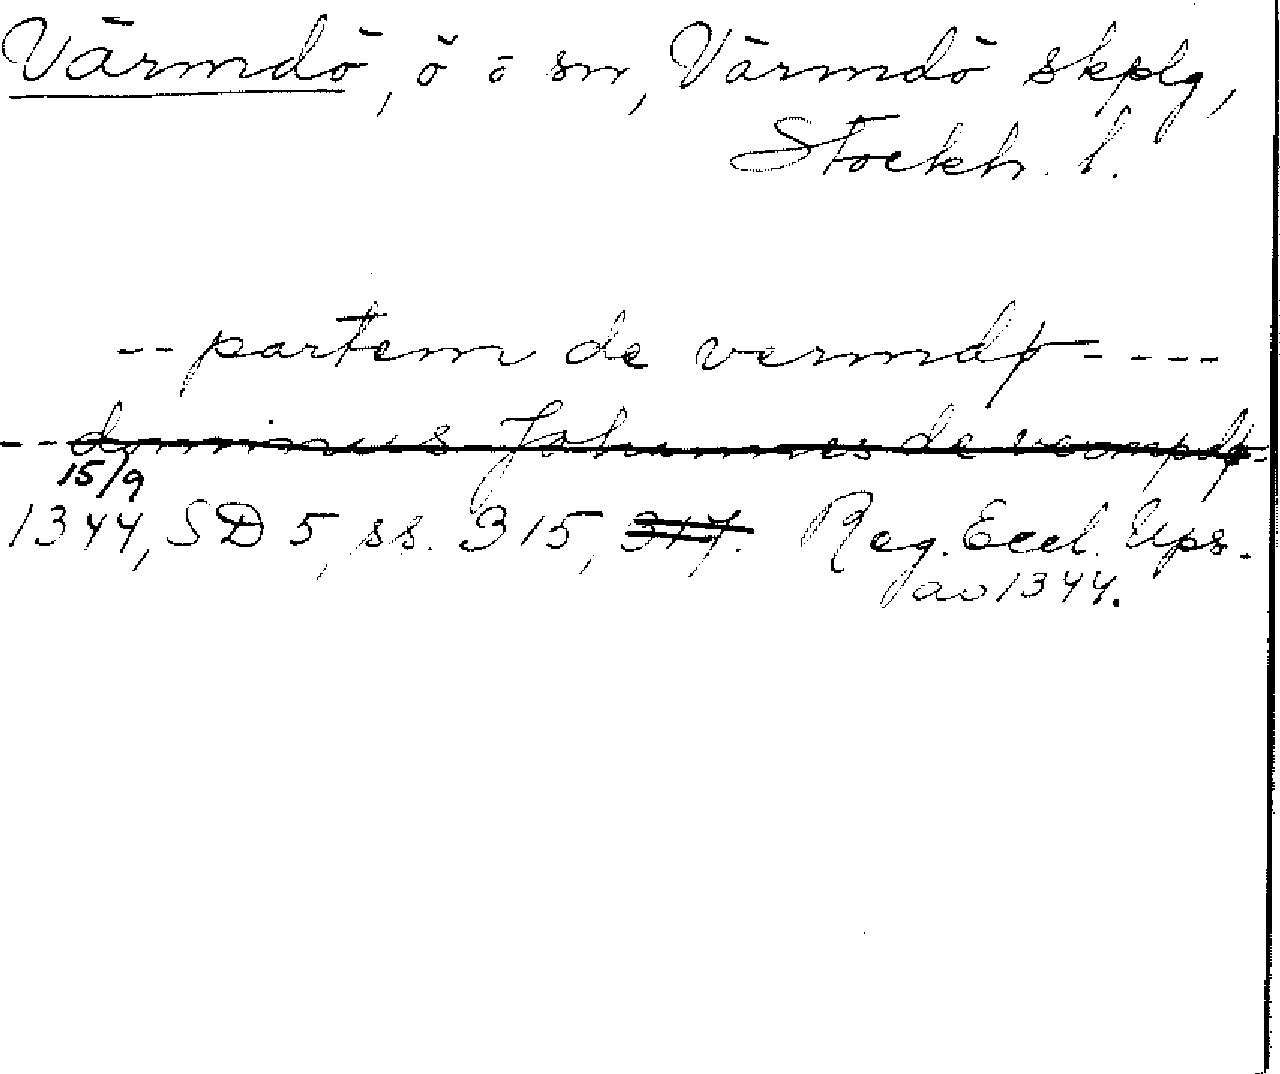 Värmdö, ö o sn, Värmdö skplg,
Stockh. l.
-- partem de vermdø ----
-- dominus Johannes de vermpdø-
15/9
1344, SD 5, ss. 315, 317. Reg. Eccl. Ups.
av 1344.